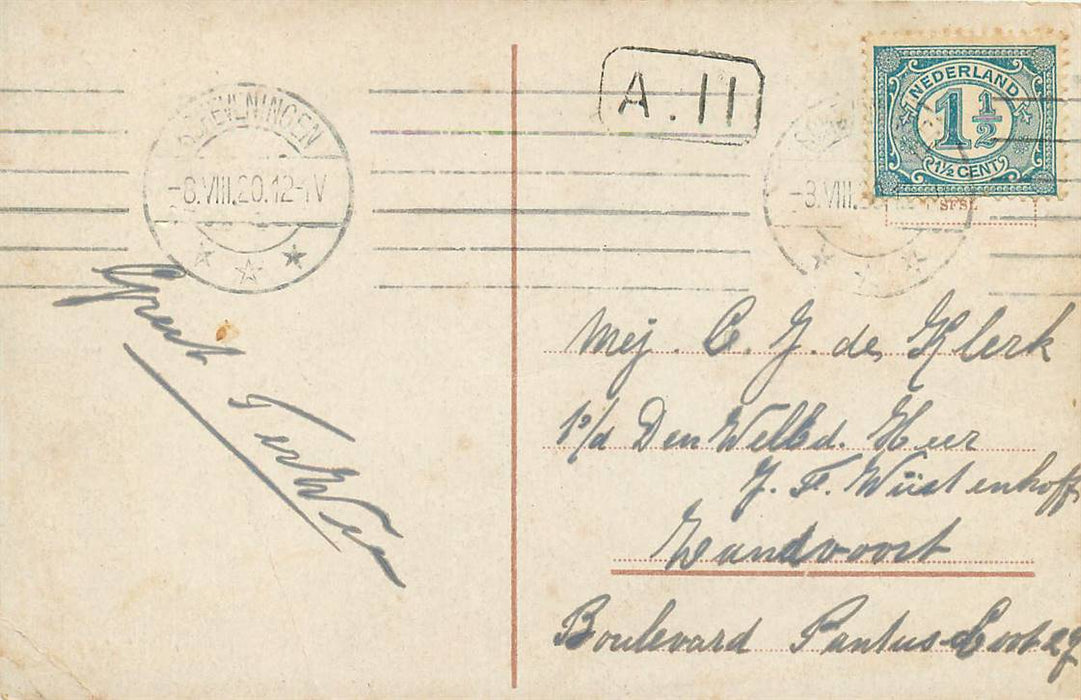 SCHEVENINGEN
-8.VIII.20.12-1V
A.11
NEDERLAND
1 1/2
1½ CENT
-8.VIII.
Greet
Mej. C. J. de Klerk
p/d Den WelEd. Heer
J. F. Wüstenhoff
Zandvoort
Boulevard Paulus Loot 27